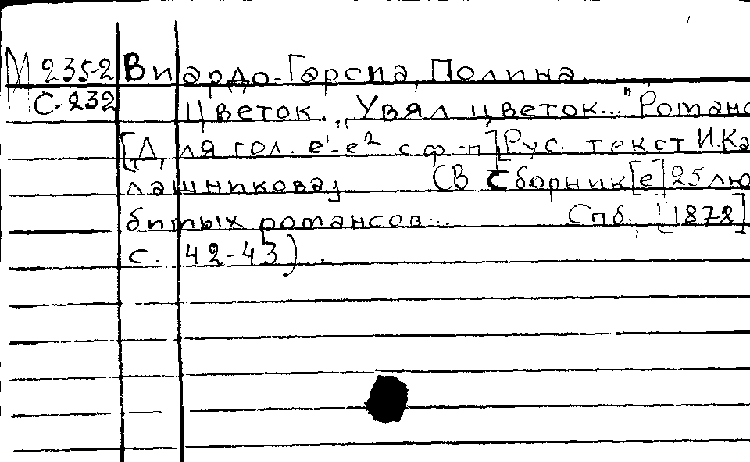 М 235-2 Виардо-Гарсиа, Полина
С-232 Цветок. „Увял цветок..." Романс
[Для гол. e¹-e² с ф-п] Рус. текст И. Ка
лашникова;   (В Сборник[е] 25 лю
битых романсов...   Спб. [1872]
с. 42-43).